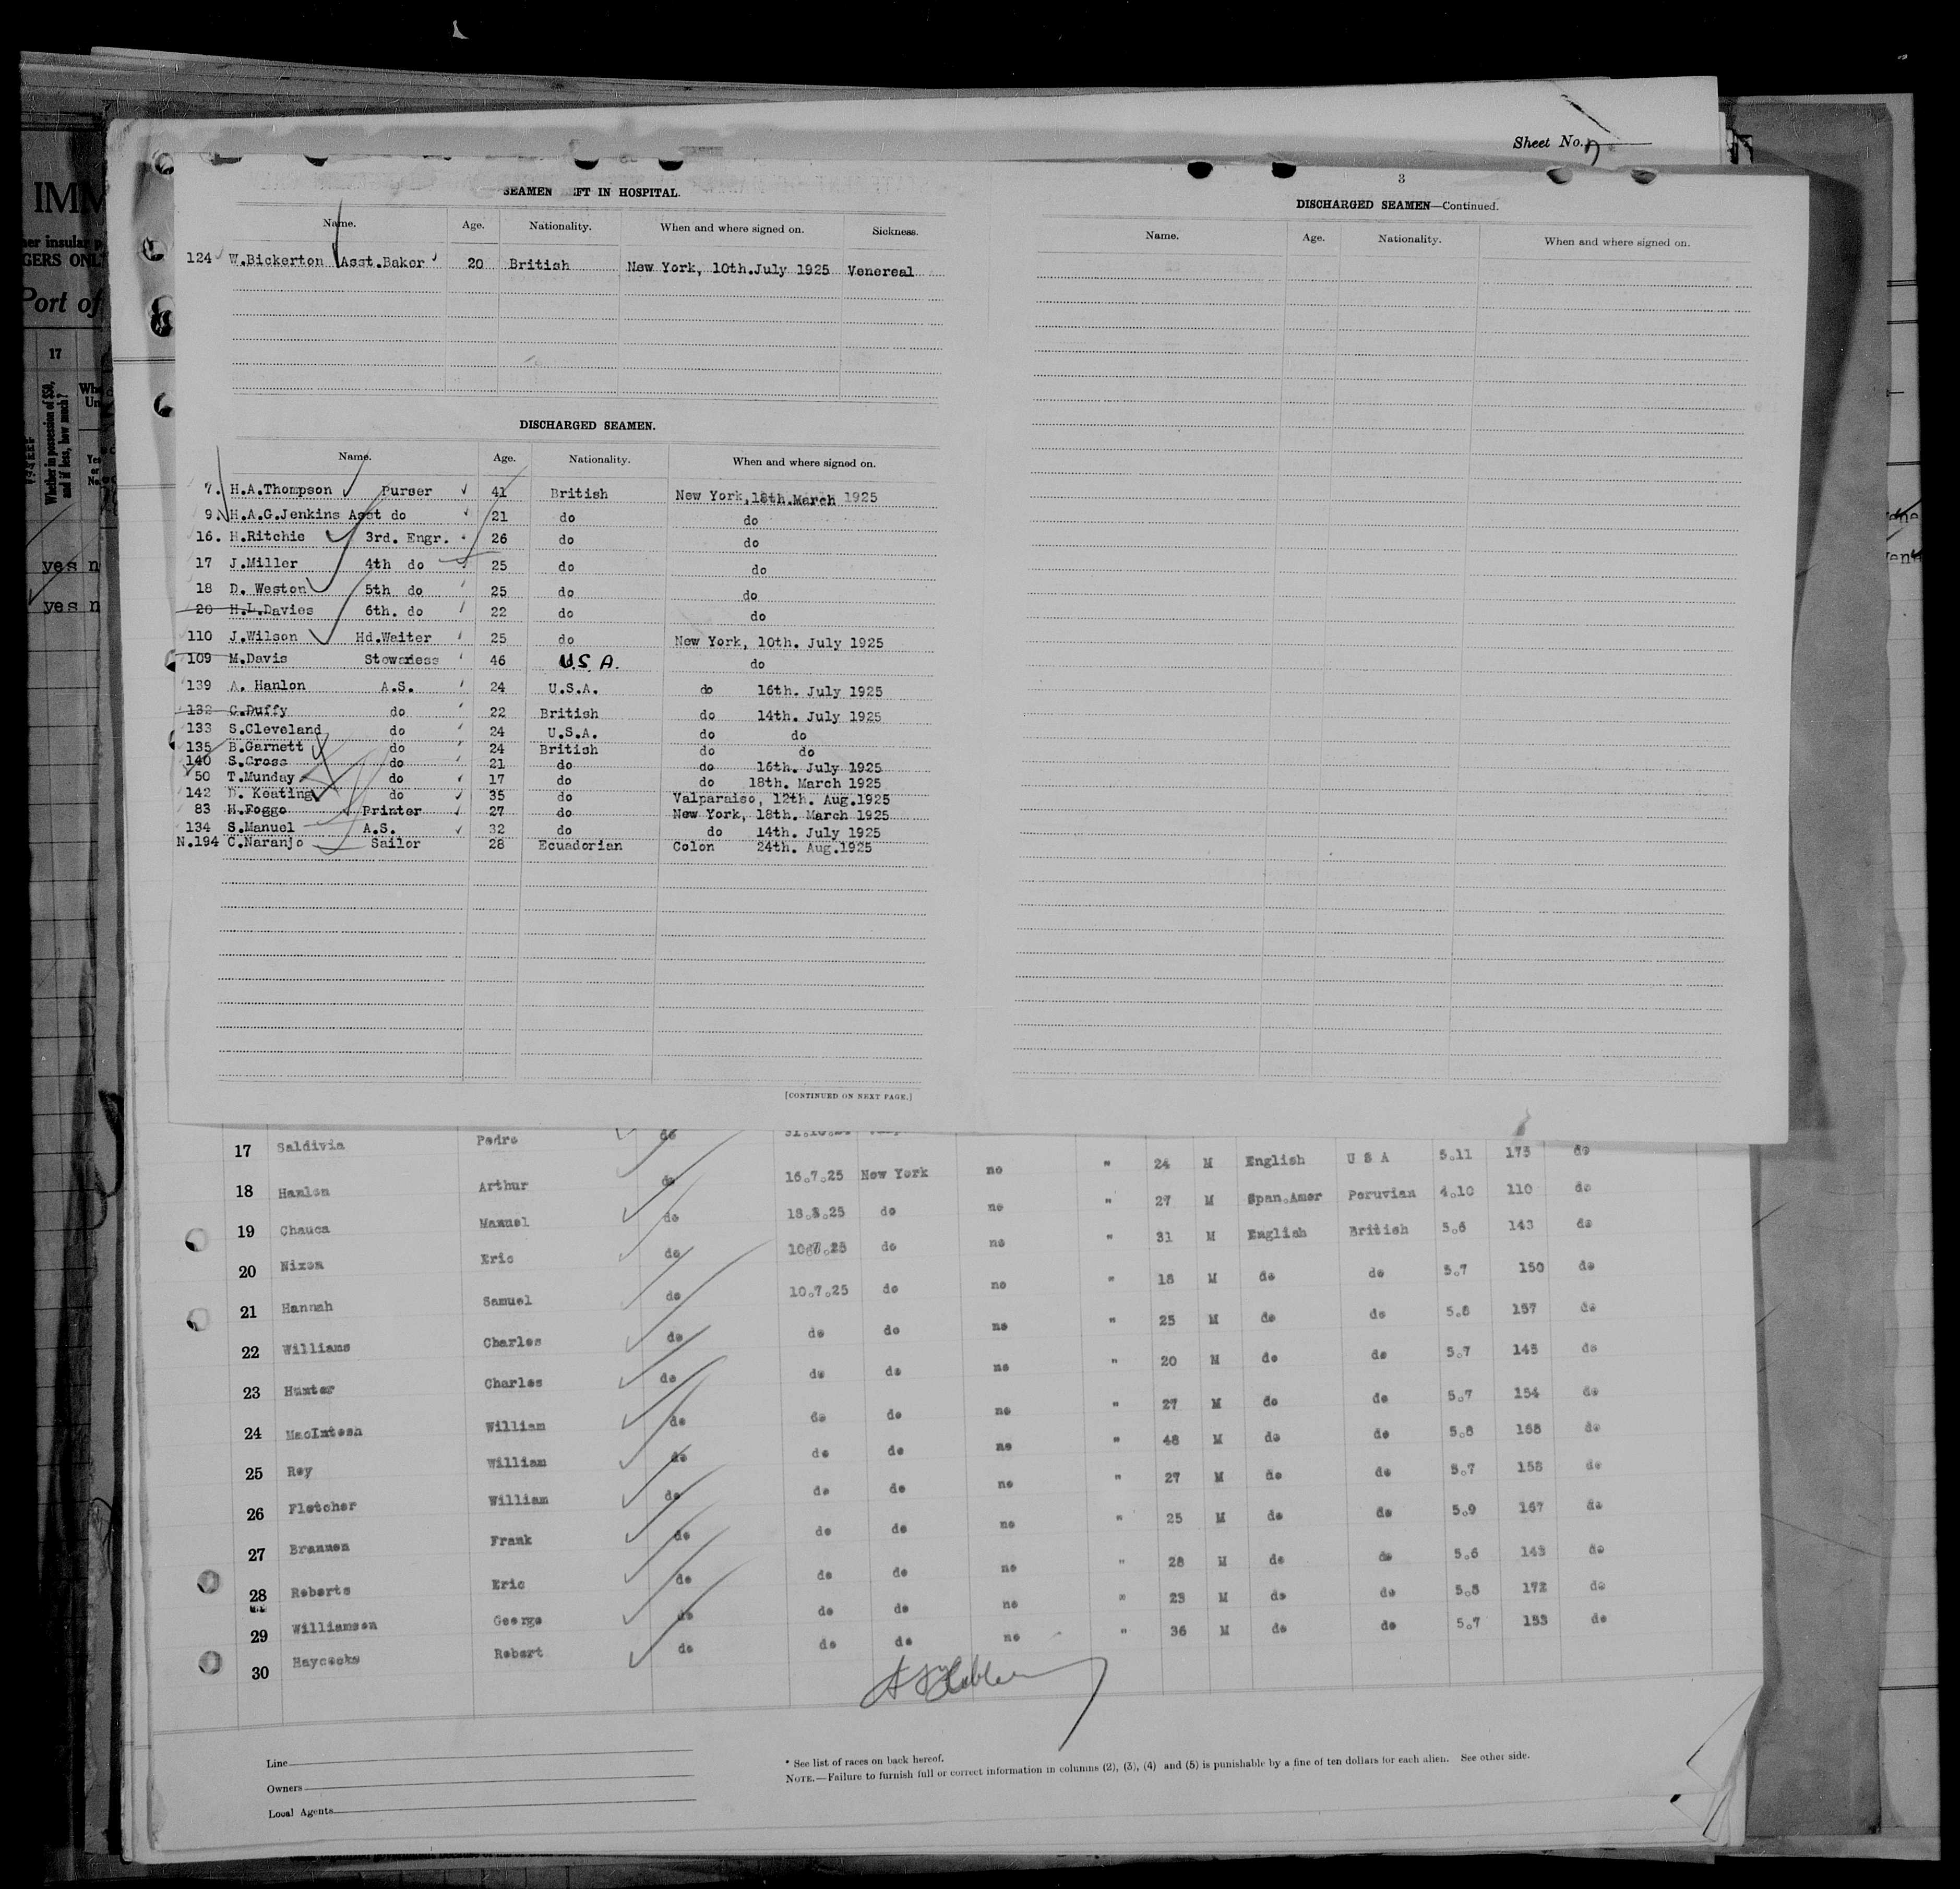 Sheet No.
SEAMEN FT IN HOSPITAL.
Name. Age. Nationality. When and where signed on. Sickness.
124 W.Bickerton Asst.Baker 20 British New York, 10th.July 1925 Venereal
DISCHARGED SEAMEN.
Name. Age. Nationality. When and where signed on.
7. H.A.Thompson Purser 41 British New York,18th.March 1925
9. H.A.G.Jenkins Asst do 21 do do
16. H.Ritchie 3rd. Engr. 26 do do
17 J.Miller 4th do 25 do do
18 D. Weston 5th do 25 do do
20 H.L.Davies 6th. do 22 do do
110 J.Wilson Hd.Waiter 25 do New York, 10th. July 1925
109 M.Davis Stewardess 46 U.S.A. do
139 A. Hanlon A.S. 24 U.S.A. do 16th. July 1925
132 C.Duffy do 22 British do 14th. July 1925
133 S.Cleveland do 24 U.S.A. do do
135 B.Garnett do 24 British do do
140 S.Cross do 21 do do 16th. July 1925
50 T.Munday do 17 do do 18th. March 1925
142 D. Keating do 35 do Valparaiso, 12th. Aug.1925
83 H.Foggo Printer 27 do New York, 18th. March 1925
134 S.Manuel A.S. 32 do do 14th. July 1925
N.194 C.Naranjo Sailor 28 Ecuadorian Colon 24th. Aug.1925
[CONTINUED ON NEXT PAGE.]
3
DISCHARGED SEAMEN—Continued.
Name. Age. Nationality. When and where signed on.
17 Saldivia Pedro do
18 Hanlon Arthur do 16.7.25 New York no " 24 M English U S A 5.11 175 do
19 Chauca Manuel do 18.3.25 do no " 27 M Span.Amer Peruvian 4.10 110 do
20 Nixon Eric do 10.7.25 do no " 31 M English British 5.6 143 do
21 Hannah Samuel do 10.7.25 do no " 18 M do do 5.7 150 do
22 Williams Charles do do do no " 25 M do do 5.8 157 do
23 Hunter Charles do do do no " 20 M do do 5.7 145 do
24 MacIntosh William do do do no " 27 M do do 5.7 154 do
25 Roy William do do do no " 48 M do do 5.8 168 do
26 Fletcher William do do do no " 27 M do do 5.7 158 do
27 Brannen Frank do do do no " 25 M do do 5.9 167 do
28 Roberts Eric do do do no " 28 M do do 5.6 143 do
29 Williamson George do do do no " 23 M do do 5.8 172 do
30 Haycocks Robert do do do no " 36 M do do 5.7 153 do
Line
Owners
Local Agents
* See list of races on back hereof.
NOTE.—Failure to furnish full or correct information in columns (2), (3), (4) and (5) is punishable by a fine of ten dollars for each alien. See other side.
IMM
GERS ONL
Port of
17
Whether in possession of $50,
and if less, how much?
yes n
yes n